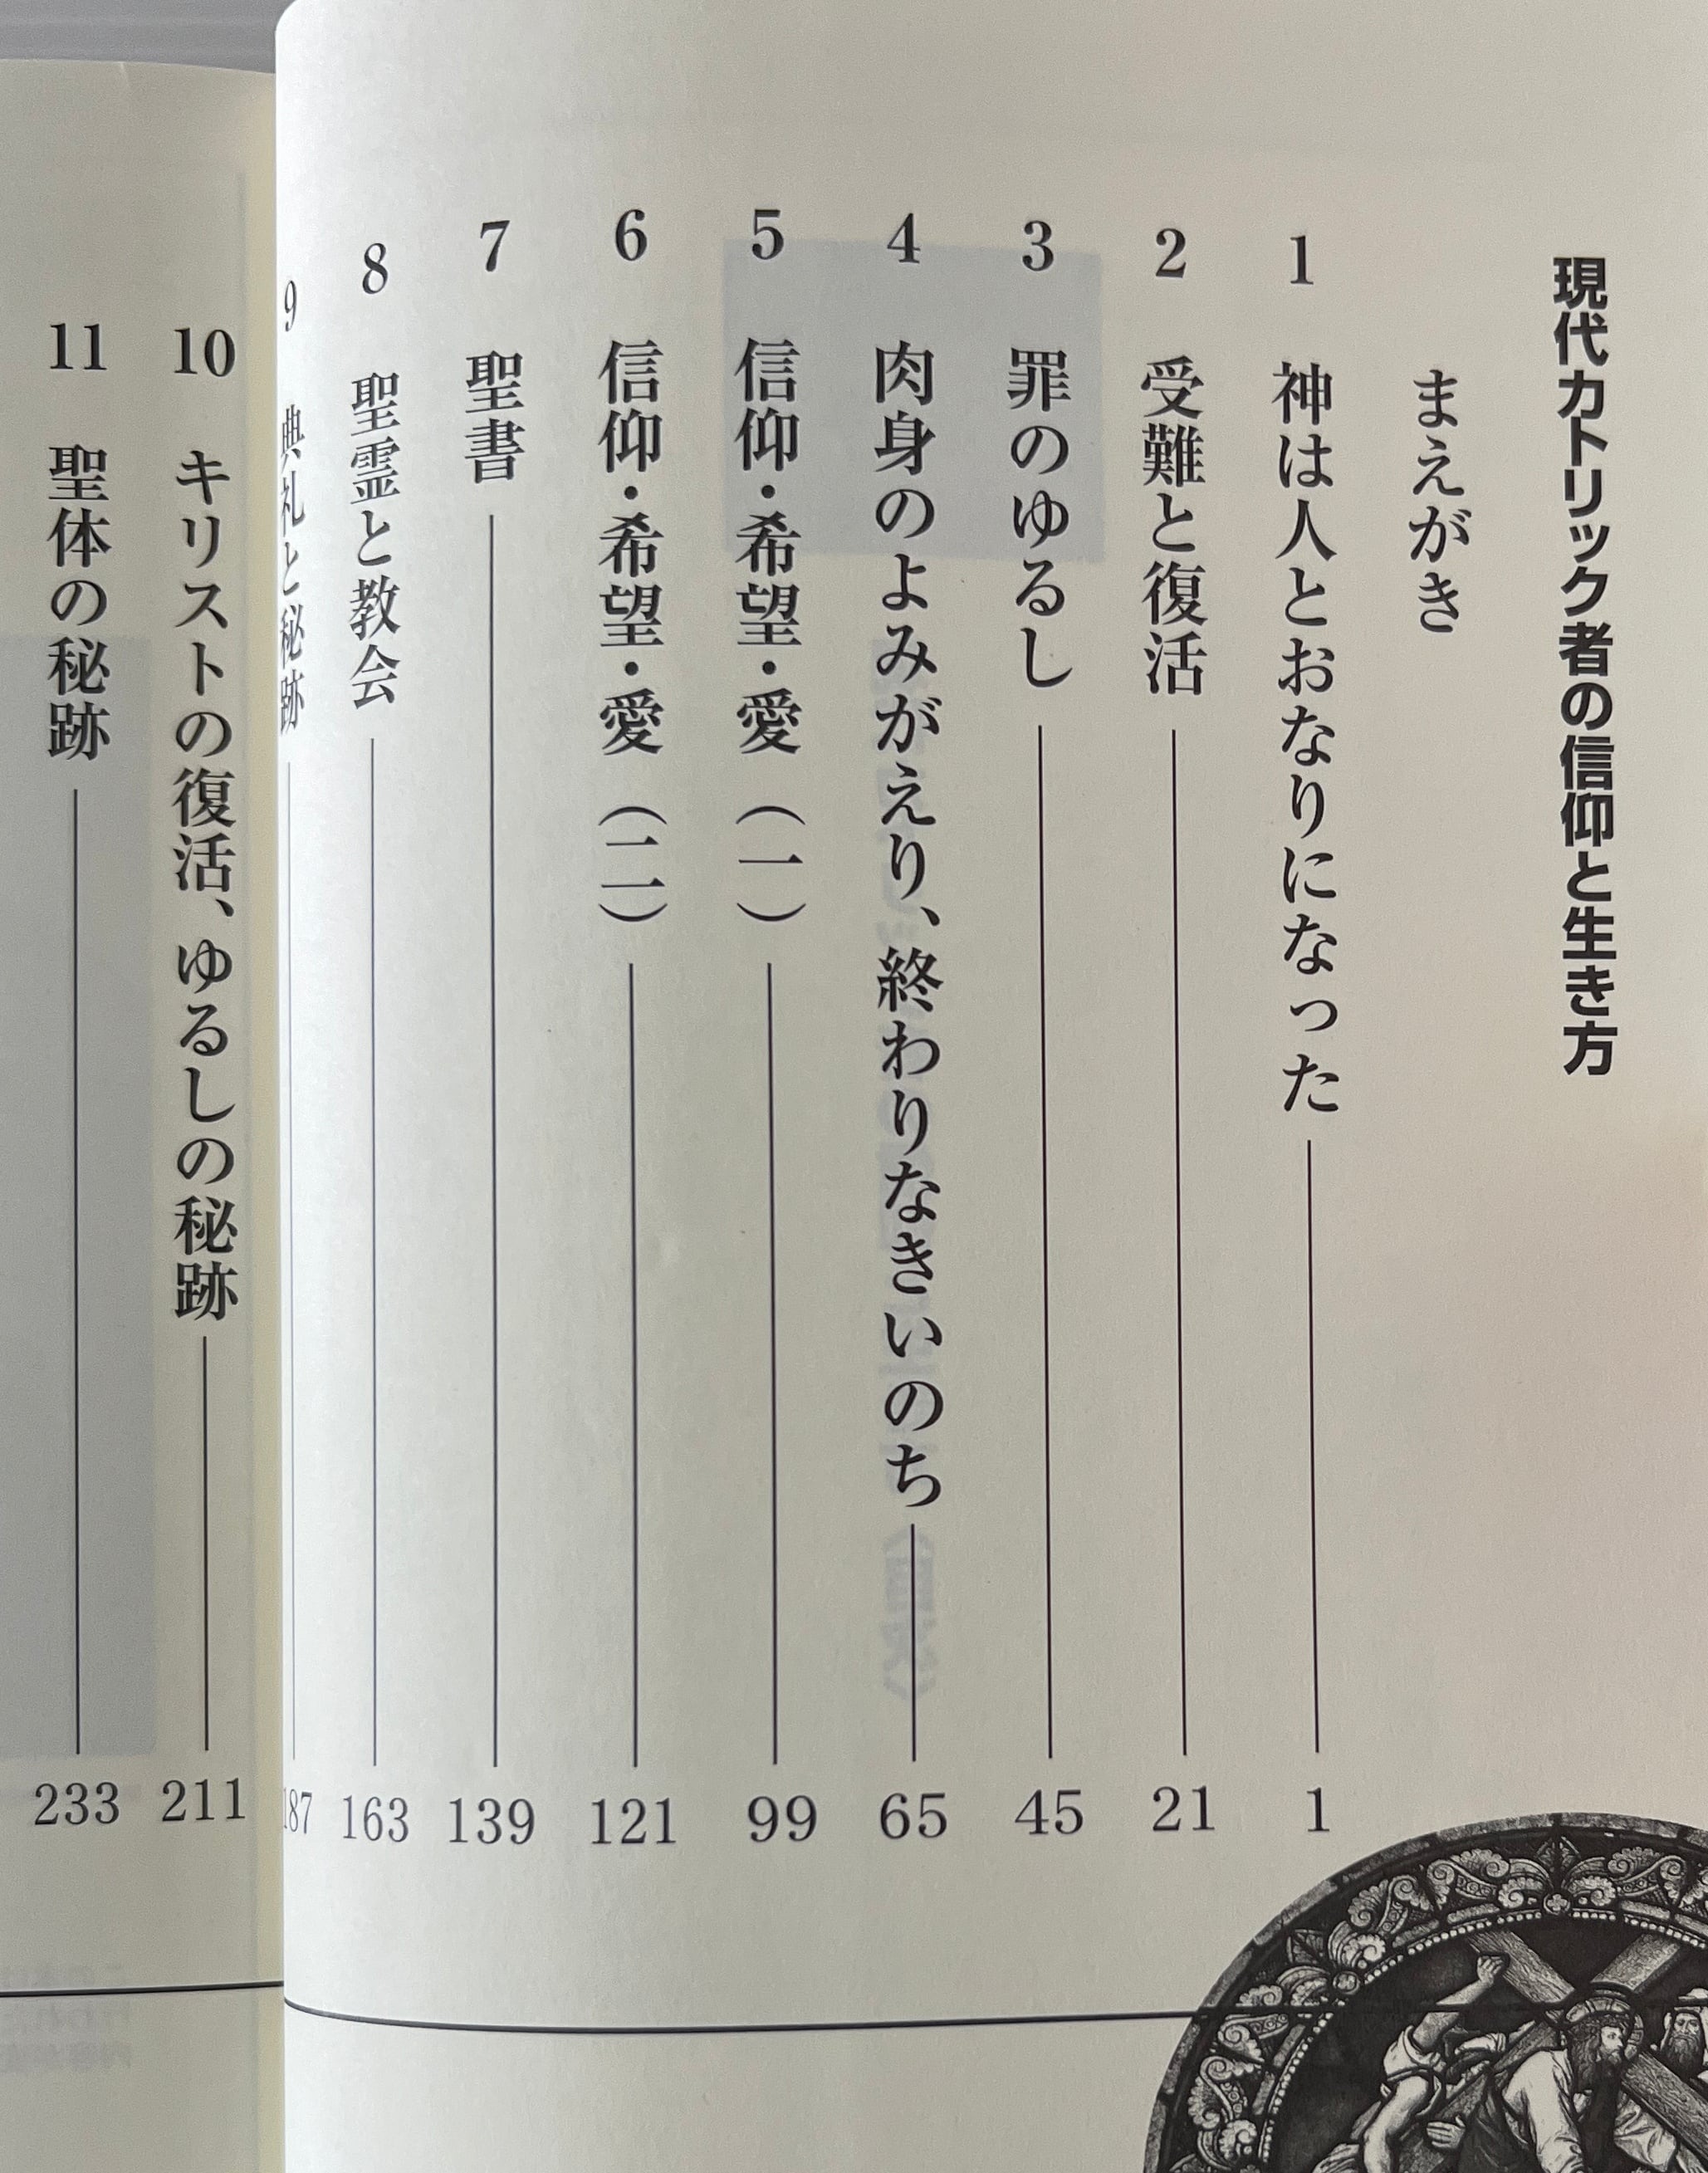 現代カトリック者の信仰と生き方
まえがき
1 神は人とおなりになった 1
2 受難と復活 21
3 罪のゆるし 45
4 肉身のよみがえり、終わりなきいのち 65
5 信仰・希望・愛（一） 99
6 信仰・希望・愛（二） 121
7 聖書 139
8 聖霊と教会 163
9 典礼と秘跡 187
10 キリストの復活、ゆるしの秘跡 211
11 聖体の秘跡 233